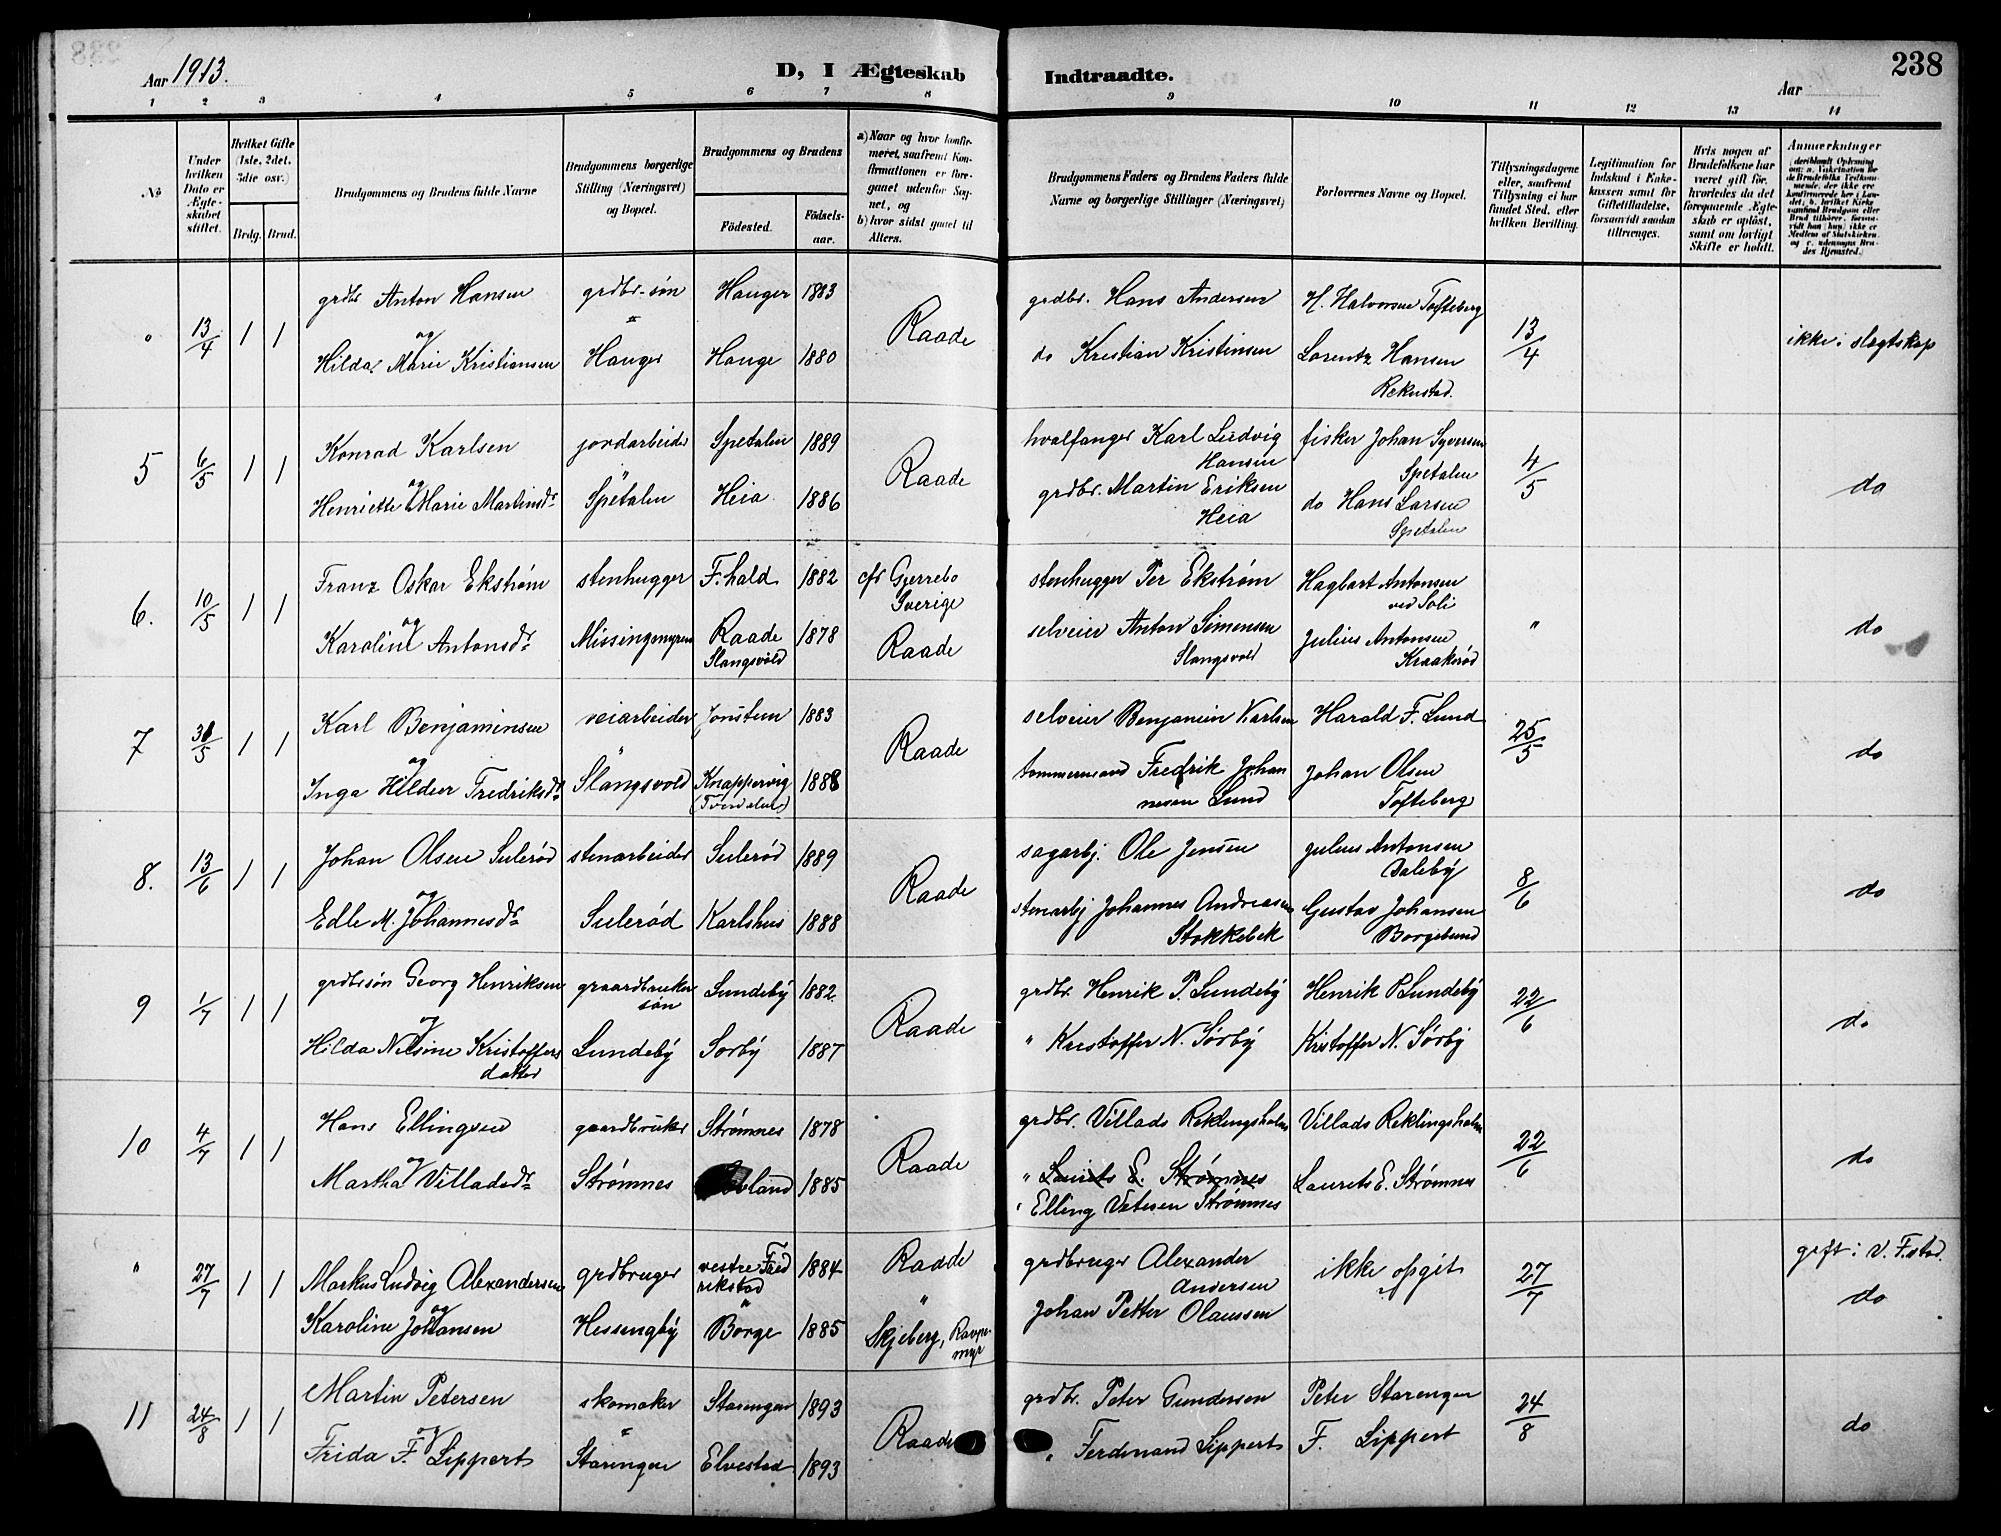 238
Aar 1913.
D, I Ægteskab Indtraadte.
Aar
1 2 3 4 5 6 7 8 9 10 11 12 13 14
No
Under hvilken Dato er Ægteskabet stiftet.
Hvilket Gifte (1ste, 2det, 3die osv.)
Brdg. Brud.
Brudgommens og Brudens fulde Navne
Brudgommens borgerlige Stilling (Næringsvei) og Bopæl.
Brudgommens og Brudens
Fødested.
Fødselsaar.
a) Naar og hvor konfirmeret, saafremt Konfirmationen er foregaaet udenfor Sognet, og
b) hvor sidst gaaet til Alters.
Brudgommens Faders og Brudens Faders fulde Navne og borgerlige Stillinger (Næringsvei)
Forlovernes Navne og Bopæl.
Tillysningsdagene eller, saafremt Tillysning ei har fundet Sted, efter hvilken Bevilling.
Legitimation for Indskud i Enkekassen samt for Giftetilladelse, forsaavidt saadan tiltrænges.
Hvis nogen af Brudefolkene har været gift før, hvorledes da det foregaaende Ægteskab er opløst, samt om lovligt Skifte er holdt.
Anmærkninger
" 13/4 1 1 grdbr Anton Hansen grdbr.-søn Hauger 1883 Raade grdbr. Hans Andersen H. Halvorsen Tofteberg 13/4 ikke i slægtskap
og "
Hilda Marie Kristiansen Hauger Hauge 1880 do Kristian Kristinsen Lorentz Hansen
Rekustad.
5 6/5 1 1 Konrad Karlsen jordarbeider Spetalen 1889 Raade hvalfanger Karl Ludvig fisker Johan Syversen 4/5 do
og " Hansen Spetalen
Henriette Marie Martinsdr Spetalen Heia 1886 grdbr. Martin Eriksen do Hans Larsen
Heia Spetalen
6. 10/5 1 1 Franz Oskar Ekstrøm stenhugger F.hald 1882 cfr Gjerrebo stenhugger Per Ekstrøm Hagbart Antonsen " do
Sverige ved Soli
og
Karoline Antonsdr Missingmyren Raade 1878 Raade selveier Anton Simensen Julius Antonsen
Slangsvold Slangsvold Kraakerød
7 31/5 1 1 Karl Benjaminsen veiarbeider Jonsten 1883 Raade selveier Benjamin Karlsen Harald F. Lund 25/5 do
og "
Inga Hildur Fredriksdr Slangsvold Knappervig 1888 tommermand Fredrik Johan Johan Olsen
nesen Lund Tofteberg
8. 13/6 1 1 Johan Olsen Sulerød stenarbeider Sulerød 1889 Raade sagarbj. Ole Jensen Julius Antonsen 8/6 do
og Daleby
Edle M. Johannesdr Sulerød Karlshus 1888 stenarbj Johannes Andreasen Gustav Johansen
Stokkebek Borgebund
9 1/7 1 1 grdbrsøn Georg Henriksen graardbruker Lundeby 1882 Raade grdbr. Henrik P. Lundeby Henrik P Lundeby 22/6 do
og søn
Hilda Nilsine Kristoffers Lundeby Sorby 1887 " Kristoffer N. Sørby Kristoffer N. Sørby
datter
10 4/7 1 1 Hans Ellingsen gaardbruker Strømnes 1878 Raade grdbr. Villads Reklingsholm Villads Reklingsholm 22/6 do
og
Martha Villadsdr Strømnes 1885 " Laurits E. Strømnes Laurits E. Strømnes
" Elling Strømnes
" 27/7 1 1 Markus Ludvig Alexandersen grdbruger vestre Fred 1884 Raade grdbruger Alexander ikke opgit 27/7 gift i V. F.stad.
rikstad Andersen do
og " "
Karoline Johansen Hessengby Borge 1885 Skjeberg, Johan Petter Olaussen
11 24/8 1 1 Martin Petersen skomaker Starengen 1893 Raade grdbr. Peter Gundersen Peter Starengen 24/8 do
og "
Frida F. Lippert Starengen Elvestad 1893 " Ferdinand Lippert F. Lippert